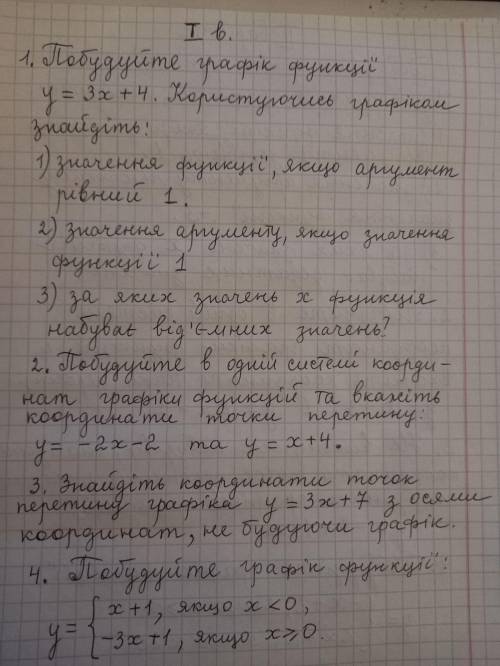 I в.
1. Побудуйте графік функції
y = 3x + 4. Користуючись графіком
знайдіть:
1) значення функції, якщо аргумент
рівний 1.
2) значення аргументу, якщо значення
функції 1
3) за яких значень x функція
набуває від'ємних значень?
2. Побудуйте в одній системі коорди-
нат графіки функцій та вкажіть
координати точки перетину:
y = -2x - 2 та y = x + 4.
3. Знайдіть координати точок
перетину графіка y = 3x + 7 з осями
координат, не будуючи графік.
4. Побудуйте графік функції:
y = { x + 1, якщо x < 0,
-3x + 1, якщо x ⩾ 0.